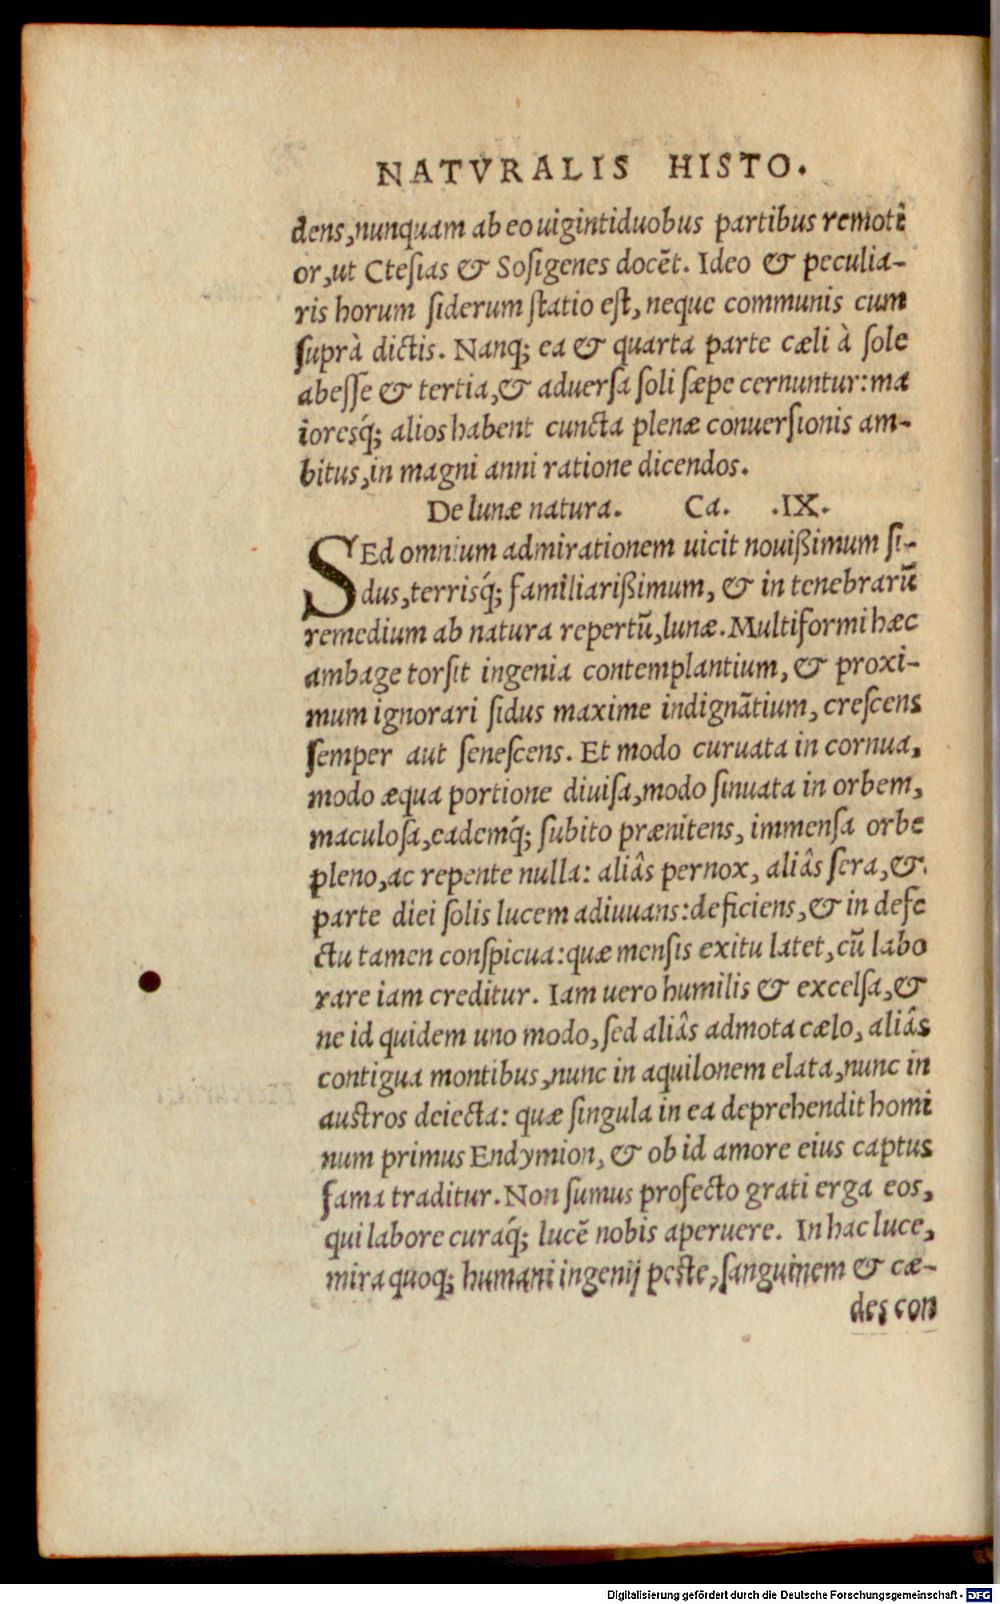 NATVRALIS HISTO.
dens, nunquam ab eo uigintiduobus partibus remoti
or, ut Ctesias & Sosigenes docēt. Ideo & peculia-
ris horum siderum statio est, neque communis cum
suprà dictis. Nanq; ea & quarta parte cæli à sole
abesse & tertia, & aduersa soli sæpe cernuntur: ma
ioreśq; alios habent cuncta plenæ conuersionis am-
bitus, in magni anni ratione dicendos.
De lunæ natura. Ca. .IX.
SEd omnium admirationem uicit nouißimum si-
dus, terriśq; familiarißimum, & in tenebrarū
remedium ab natura repertū, lunæ. Multiformi hæc
ambage torsit ingenia contemplantium, & proxi-
mum ignorari sidus maxime indignātium, crescens
semper aut senescens. Et modo curuata in cornua,
modo æqua portione diuisa, modo sinuata in orbem,
maculosa, eadeḿq; subito prænitens, immensa orbe
pleno, ac repente nulla: aliâs pernox, aliâs sera, &
parte diei solis lucem adiuuans: deficiens, & in defe
ctu tamen conspicua: quæ mensis exitu latet, cū labo
rare iam creditur. Iam uero humilis & excelsa, &
ne id quidem uno modo, sed aliâs admota cælo, aliâs
contigua montibus, nunc in aquilonem elata, nunc in
austros deiecta: quæ singula in ea deprehendit homi
num primus Endymion, & ob id amore eius captus
fama traditur. Non sumus profecto grati erga eos,
qui labore curaq́; lucē nobis aperuere. In hac luce,
mira quoq; humani ingenij peste, sanguinem & cæ-
des con
Digitalisierung gefördert durch die Deutsche Forschungsgemeinschaft - DFG